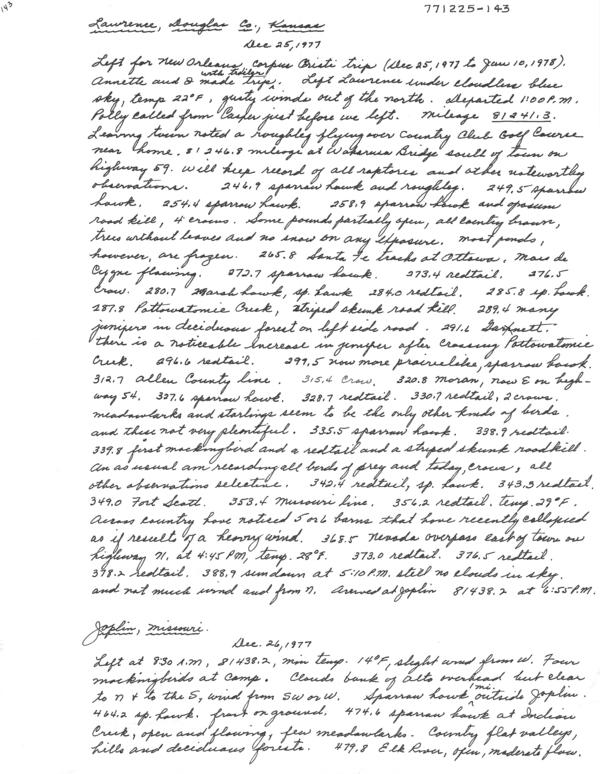 143
771225-143
Lawrence, Douglas Co., Kansas
Dec 25, 1977
Left for New Orleans, Corpus Cristi trip (Dec 25, 1977 to Jan 10, 1978).
Annette and I made trip. with trailer Left Lawrence under cloudless blue
sky, temp 22°F, gusty winds out of the north. Departed 1:00 P.M.
Polly called from Casper just before we left. Mileage 81241.3.
Leaving town noted a roughleg flying over Country Club Golf Course
near home. 81246.8 mileage at Wakarusa Bridge south of town on
highway 59. Will keep record of all raptores and other noteworthy
observations. 246.9 sparrow hawk and roughleg. 249.5 sparrow
hawk. 254.1 sparrow hawk. 258.9 sparrow hawk and opossum
road kill, 4 crows. Some pounds partially open, all country brown,
trees without leaves and no snow on any exposure. Most ponds,
however, are frozen. 265.8 Santa Fe tracks at Ottawa, Mais de
Cygne flowing. 272.7 sparrow hawk. 273.4 redtail. 276.5
Crow. 280.7 Marsh hawk, sp. hawk 284.0 redtail. 285.8 sp. hawk.
287.8 Pottowatomie Creek, striped skunk road kill. 289.4 many
junipers in deciduous forest on left side road. 291.6 Garnett.
there is a noticeable increase in juniper after crossing Pottowatomie
Creek. 296.6 redtail. 299.5 now more prairielike, sparrow hawk.
312.7 Allen County line. 315.4 Crow. 320.8 Moran, now E on high-
way 54. 327.6 sparrow hawk. 328.7 redtail. 330.7 redtail, 2 crows.
meadowlarks and starlings seem to be the only other kinds of birds.
and these not very plentiful. 335.5 sparrow hawk. 338.9 redtail.
339.8 first mockingbird and a redtail and a striped skunk roadkill.
As usual am recording all birds of prey and today, crows, all
other observations selective. 342.4 redtail, sp. hawk. 343.3 redtail.
349.0 Fort Scott. 353.4 Missouri line. 356.2 redtail. temp. 29°F.
Across country have noticed 5 or 6 barns that have recently collapsed
as if results of a heavy wind. 368.5 Nevada overpass east of town on
highway 71, at 4:45 PM, temp. 28°F. 373.0 redtail. 376.5 redtail.
378.2 redtail. 388.9 sundown at 5:10 P.M. still no clouds in sky.
and not much wind and from N. Arrived at Joplin 81438.2 at 6:55 P.M.
Joplin, Missouri.
Dec. 26, 1977
Left at 830 A.M, 81438.2, min temp. 14°F, slight wind from W. Four
mockingbirds at camp. Clouds bank of alto overhead but clear
to N & to the S, wind from SW or W. Sparrow hawk mi. outside Joplin.
464.2 sp. hawk. frost on ground. 474.6 sparrow hawk at Indian
Creek, open and flowing, few meadowlarks. Country flat valleys,
hills and deciduous forests. 479.8 Elk River, open, moderate flow.